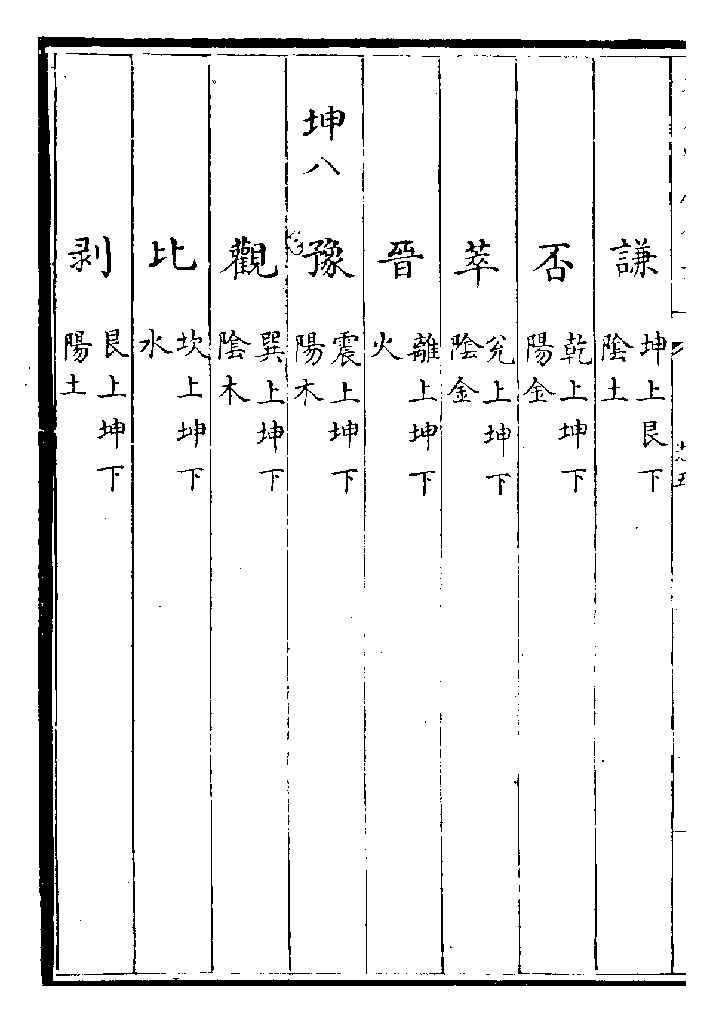 謙 坤上艮下陰土
否 乾上坤下陽金
萃 兊上坤下陰金
晉 離上坤下火
坤八 豫 震上坤下陽木
觀 巽上坤下陰木
比 坎上坤下水
剥 艮上坤下陽土